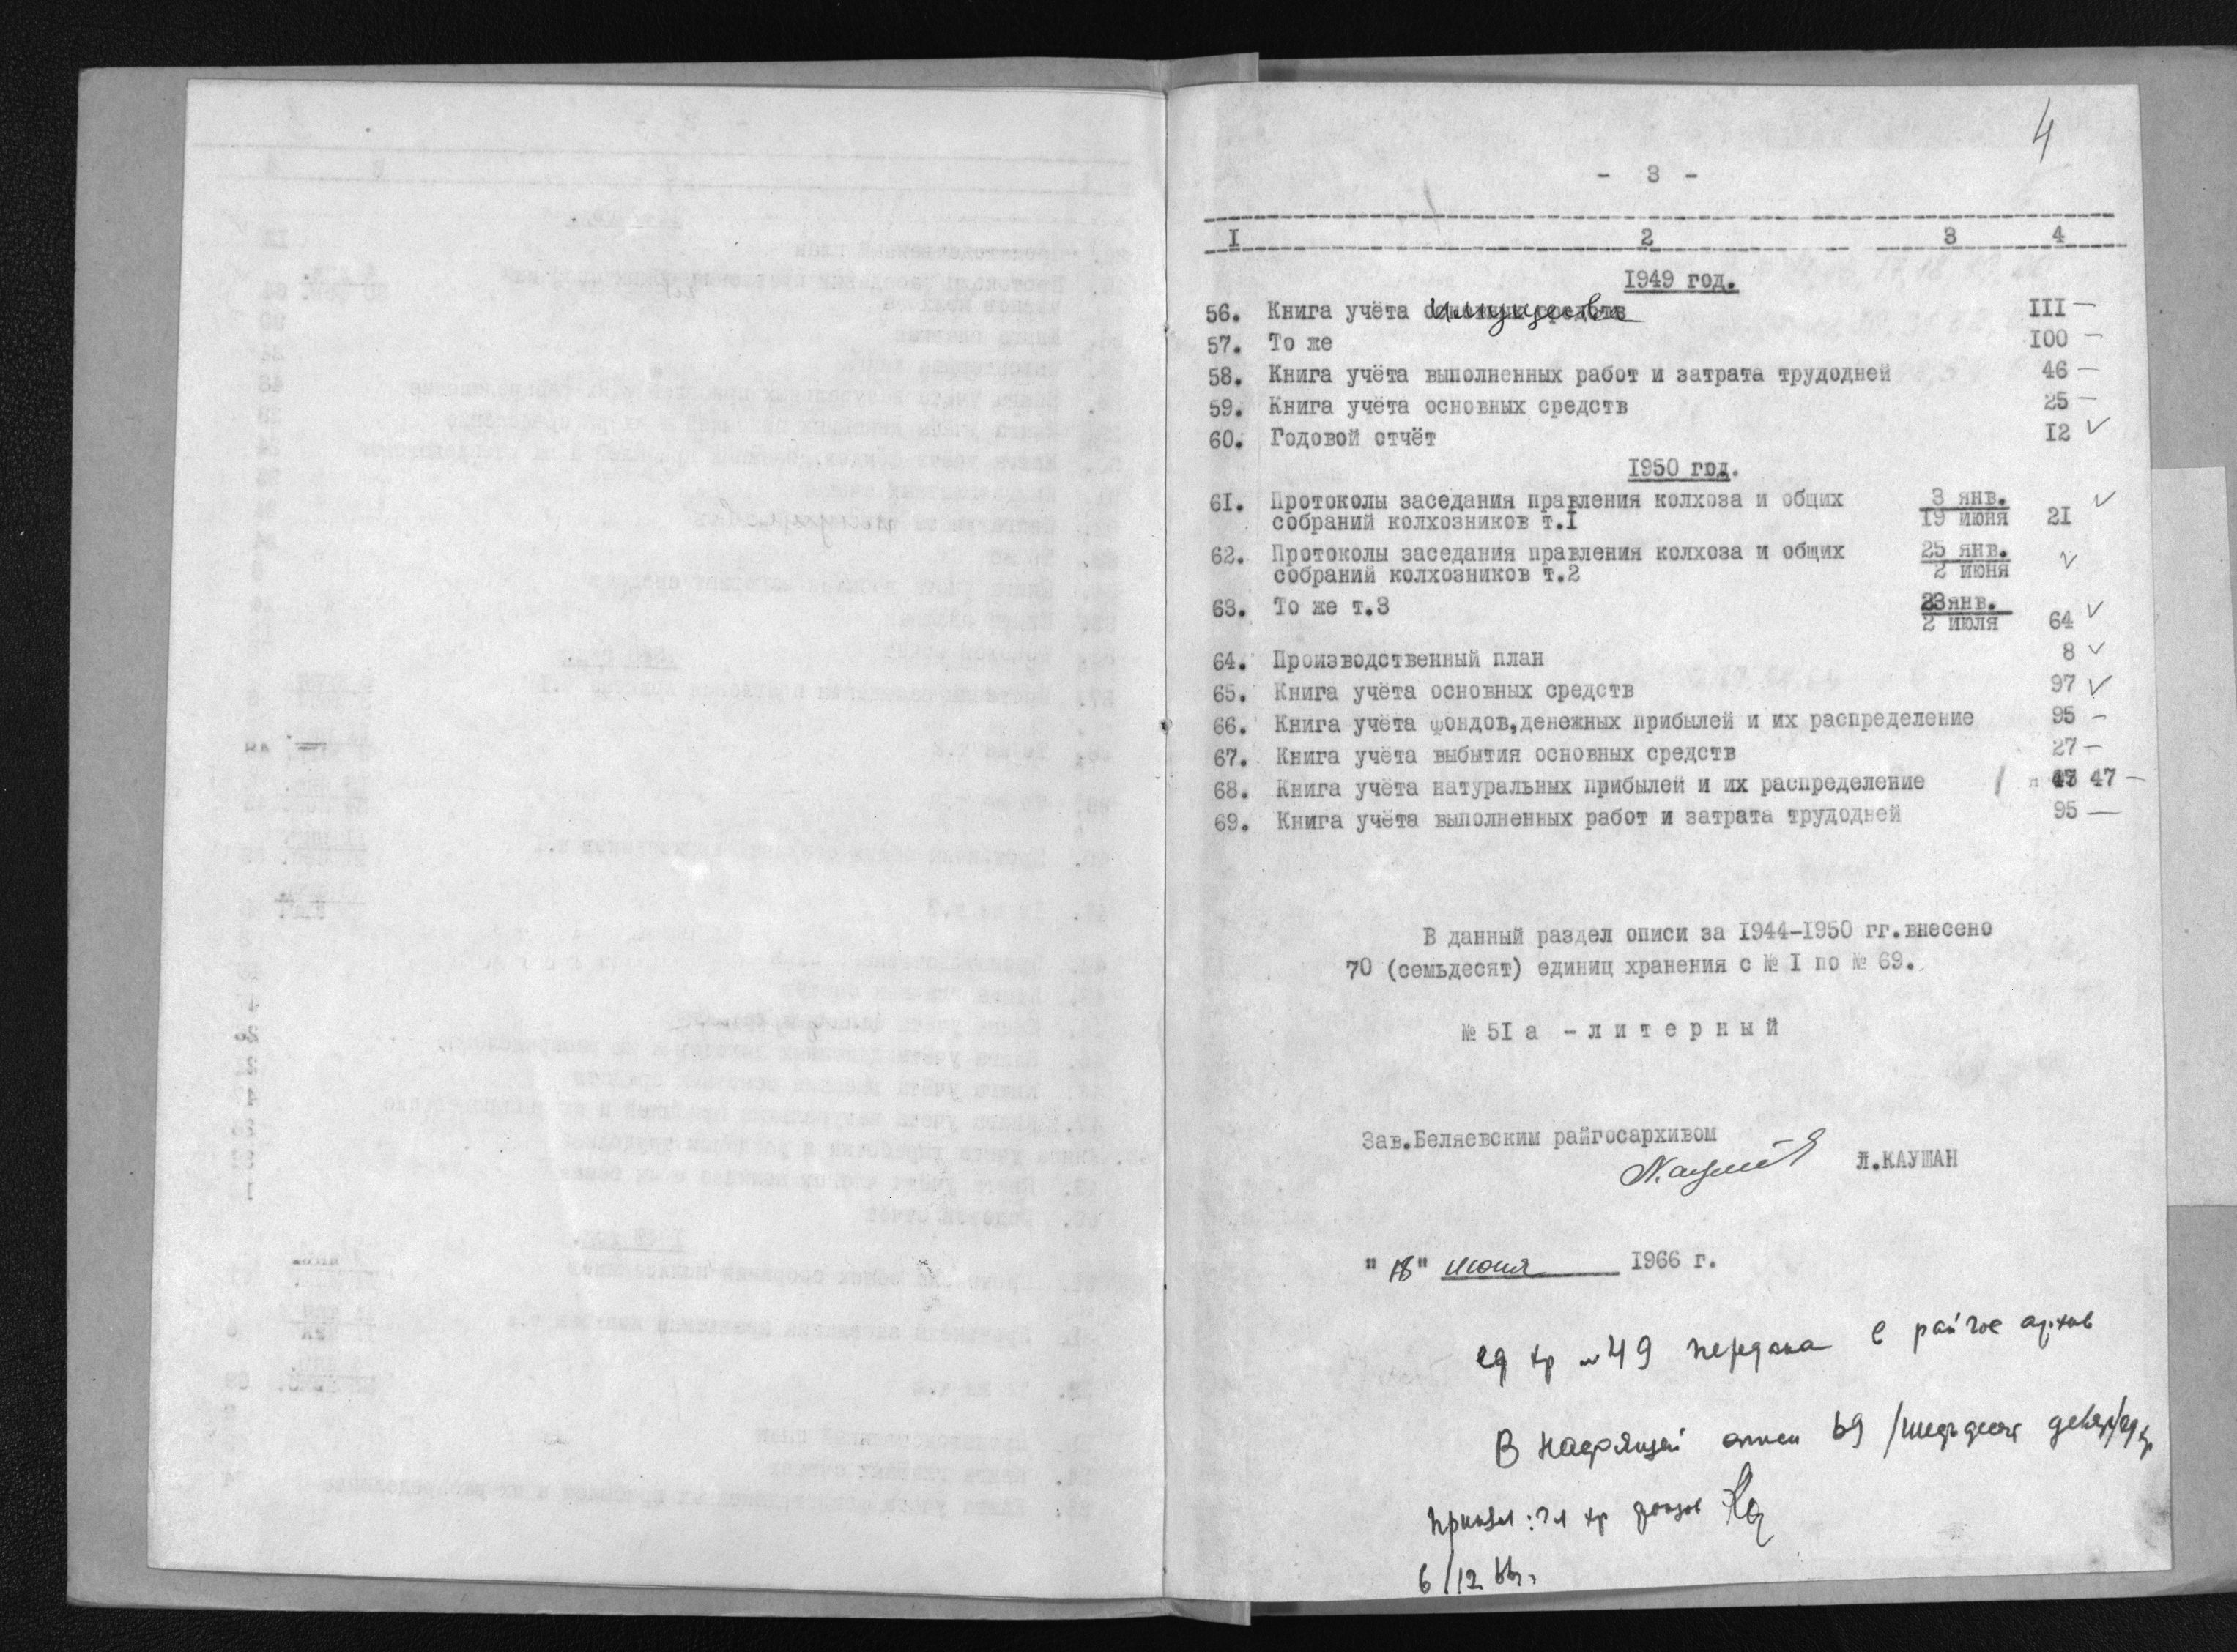 4
- 3 -
I 2 3 4
1949 год.
56. Книга учёта имущества III —
57. То же 100 —
58. Книга учёта выполненных работ и затрата трудодней 46 —
59. Книга учёта основных средств 25 —
60. Годовой отчёт I2 ✓
1950 год.
6I. Протоколы заседания правления колхоза и общих 3 янв. ✓
собраний колхозников т.I I9 июня 2I
62. Протоколы заседания правления колхоза и общих 25 янв. ✓
собраний колхозников т.2 2 июня
63. То же т.3 23янв. ✓
2 июля 64
64. Производственный план 8 ✓
65. Книга учёта основных средств 97 ✓
66. Книга учёта фондов,денежных прибылей и их распределение 95 —
67. Книга учёта выбытия основных средств 27 —
68. Книга учёта натуральных прибылей и их распределение 47 —
69. Книга учёта выполненных работ и затрата трудодней 95 —
В данный раздел описи за I944-I950 гг.внесено
70 (семьдесят) единиц хранения с № I по № 69.
№ 5I а - л и т е р н ы й
Зав.Беляевским райгосархивом
Л.КАУШАН
" 18 " июня I966 г.
ед хр № 49 передана в райгосархив
В настоящей описи 69 /шестьдесят девять/ ед хр
6/12 66г.